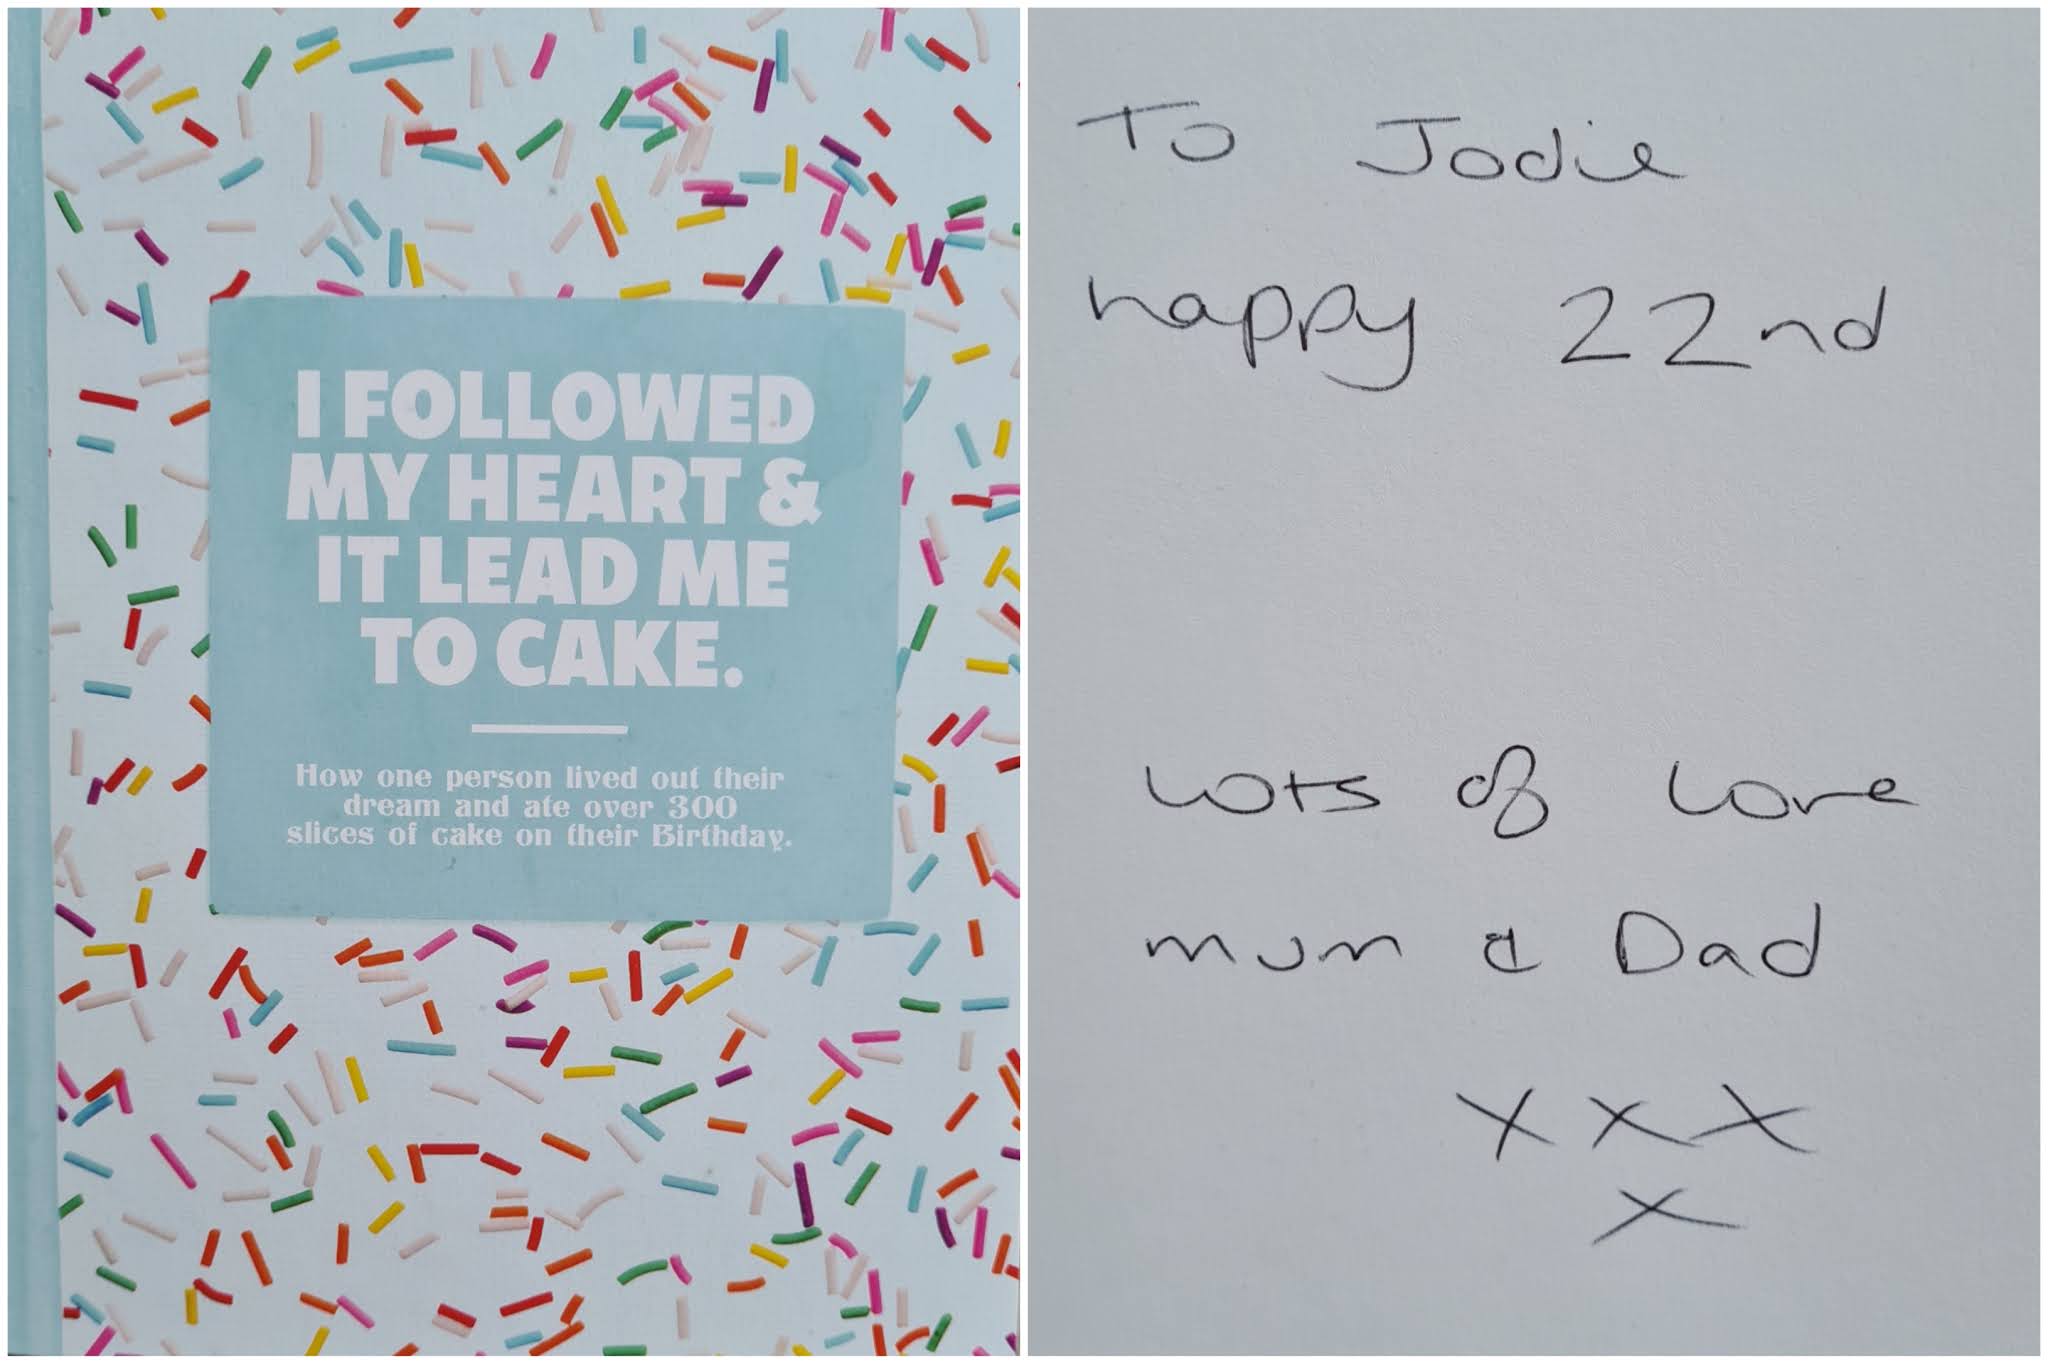 I FOLLOWED
MY HEART &
IT LEAD ME
TO CAKE.
How one person lived out their
dream and ate over 300
slices of cake on their Birthday.
To Jodie
happy 22nd
Lots of Love
mum & Dad
xxx
x